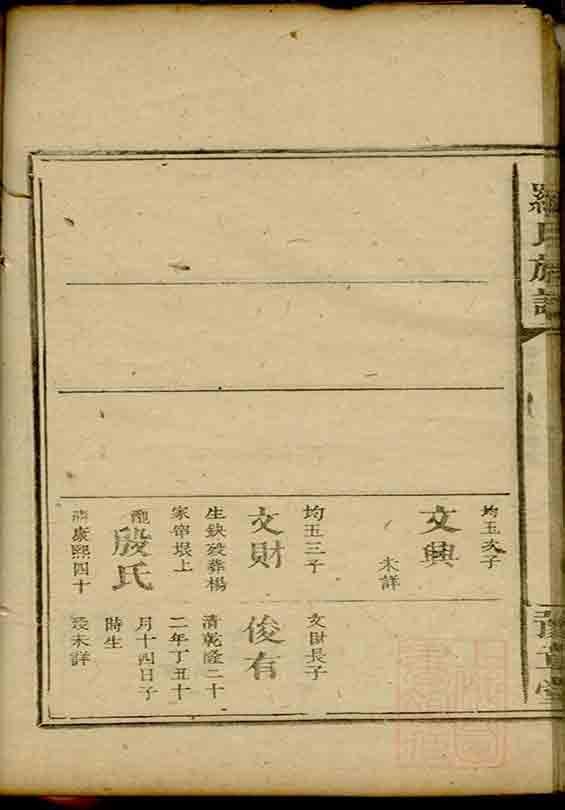 羅氏族譜
豫章堂
均玉次子
文興
未詳
均五三子
文財
生缺歿葬楊
家窜垠上
配殷氏
清康熙四十
文財長子
俊有
清乾隆二十
二年丁丑十
月十四日子
時生
歿未詳